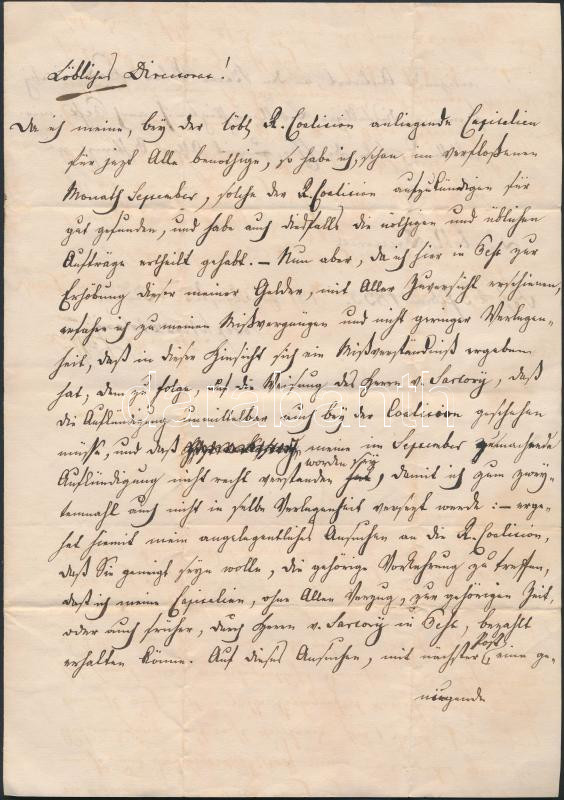 Löbliches Directorat!
Da ich meine, bey der löbl. K. Coalicion anliegende Capitalien
für jezt Alle benöthige, so habe ich, schon im verfloßenen
Monath September, solche der K. Coalicion aufzukündigen für
gut gefunden, und habe auch diesfalls die nöthigen und üblichen
Aufträge ertheilt gehabt. – Nun aber, da ich hier in Pest zur
Erhöbung dieser meiner Gelder, mit Aller Zuversicht erschienen,
erfahre ich zu meinen Mißvergnügen und nicht geringer Verlegen-
heit, daß in dieser Hinsicht sich ein Mißverständniß ergeben
hat, dem zu folge, auf die Weisung des Herrn v. Sartory, daß
die Aufkündigung unmittelbar auch bey der Coalicion geschehen
müsse, und daß meine im September zumachende
Aufkündigung nicht recht verstanden worden sey, damit ich zum zwey-
tenmahl auch nicht in selbe Verlegenheit versezt werde: – erge-
het hiemit mein angelegentliches Ansuchen an die K. Coalicion,
daß Sie geneigt seyn wolle, die gehörige Vorkehrung zu treffen,
daß ich meine Capitalien, ohne Allen Verzug, zur gehörigen Zeit,
oder auch früher, durch Herrn v. Sartory in Pest, bezahlt
erhalten könne. Auf dieses Ansuchen, mit nächster Post eine ge-
nügende
darabanth